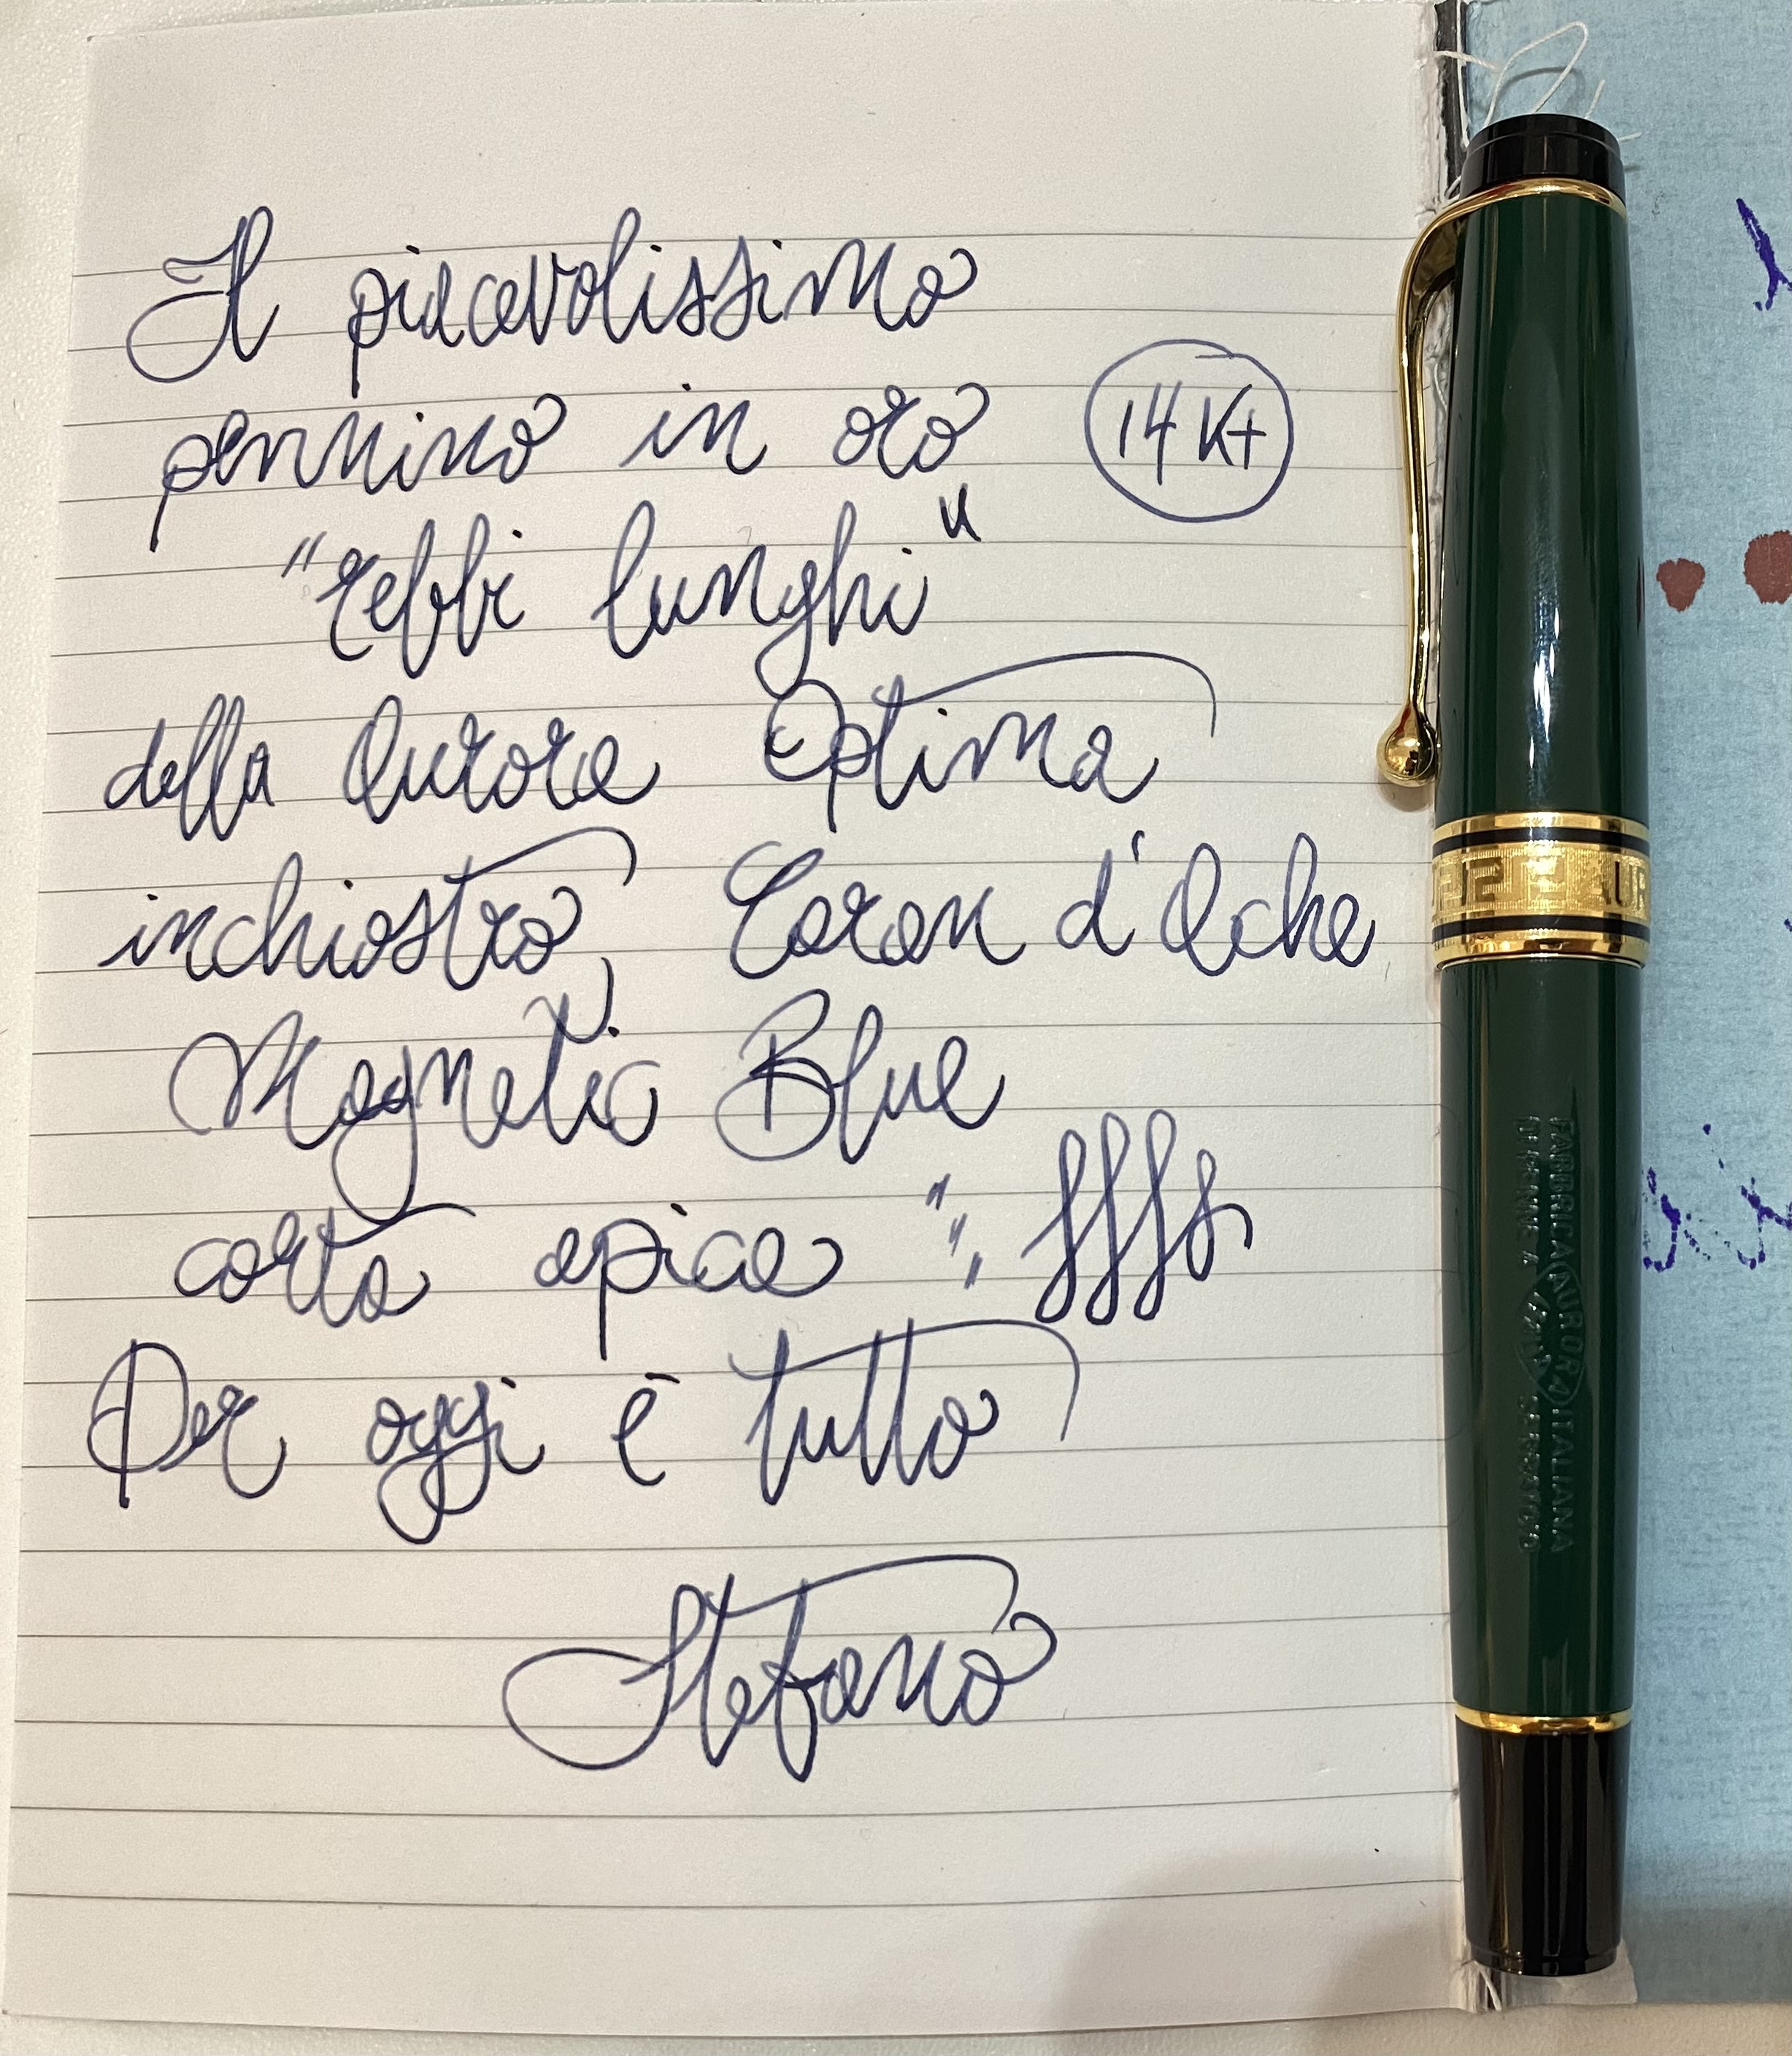 Il piacevolissimo
pennino in oro 14 Kt
"rebbi lunghi"
della Aurora Optima
inchiostro, Caran d'Ache
Magnetic Blue
carta apica "," ffff
Per oggi è tutto
Stefano
AUR
FABBRICA AURORA ITALIANA